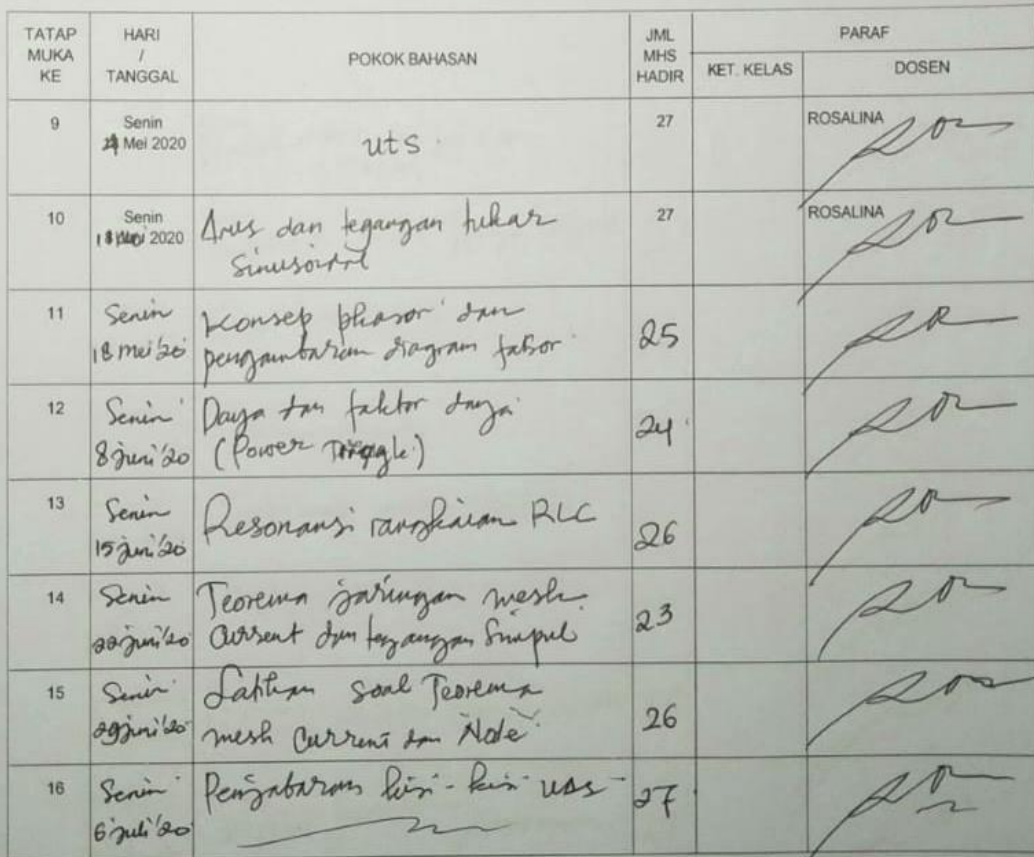 TATAP MUKA KE
HARI / TANGGAL
POKOK BAHASAN
JML MHS HADIR
PARAF
KET. KELAS
DOSEN
9
Senin
Mei 2020
uts
27
ROSALINA
10
Senin
2020
Arus dan tegangan tukar
Sinusoidal
27
ROSALINA
11
Senin
18 mei '20
Konsep phasor dan
pengambaran diagram fasor
25
12
Senin
8 juni '20
Daya dan faktor daya
(Power Triangle)
24
13
Senin
15 juni '20
Resonansi rangkaian RLC
26
14
Senin
22 juni '20
Teorema jaringan mesh
Current dan tegangan Simpul
23
15
Senin
29 juni '20
Latihan soal Teorema
mesh Current dan Node
26
16
Senin
6 juli '20
Penjabaran kisi-kisi UAS
27